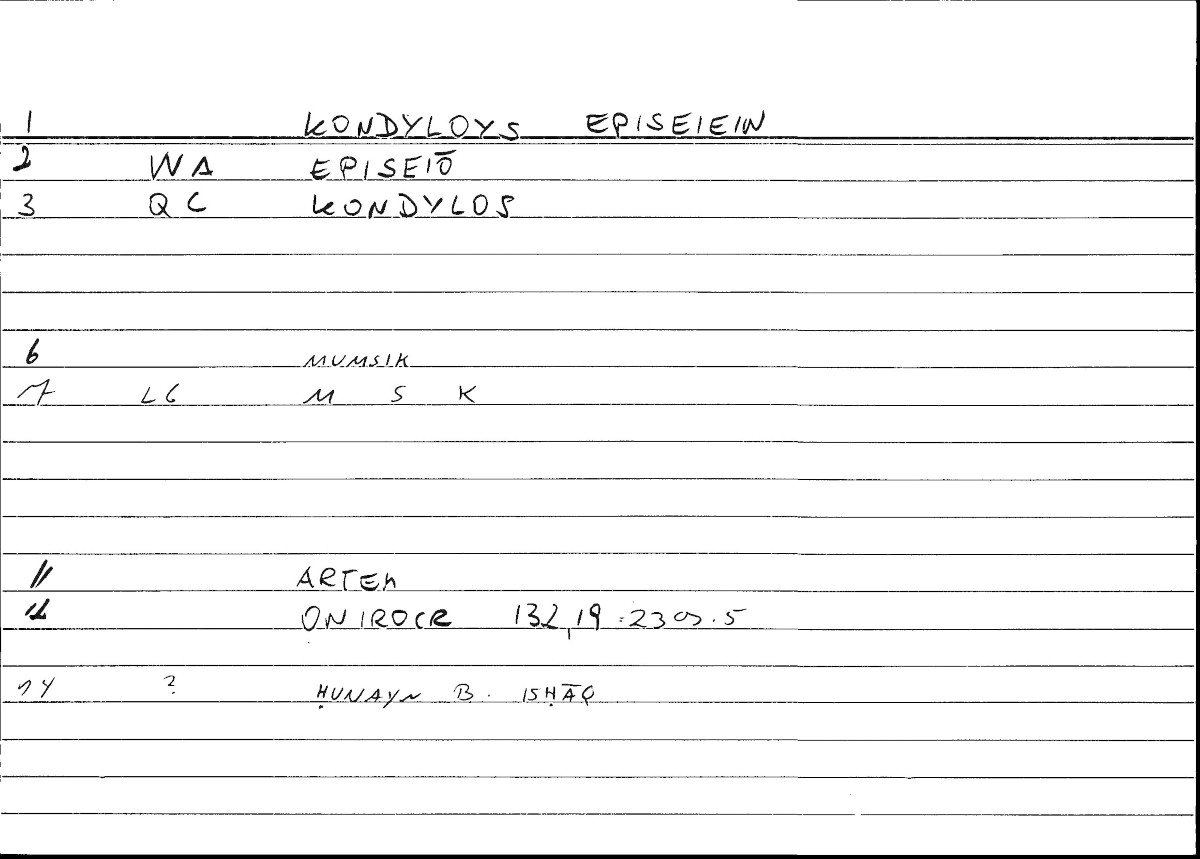 1 KONDYLOYS EPISEIEIN
2 WA EPISEIŌ
3 QC KONDYLOS
6 MUMSIK
7 LG M S K
11 ARTEM
12 ONIROCR 132,19 : 230.5
14 ? ḤUNAYN B. ISḤĀQ